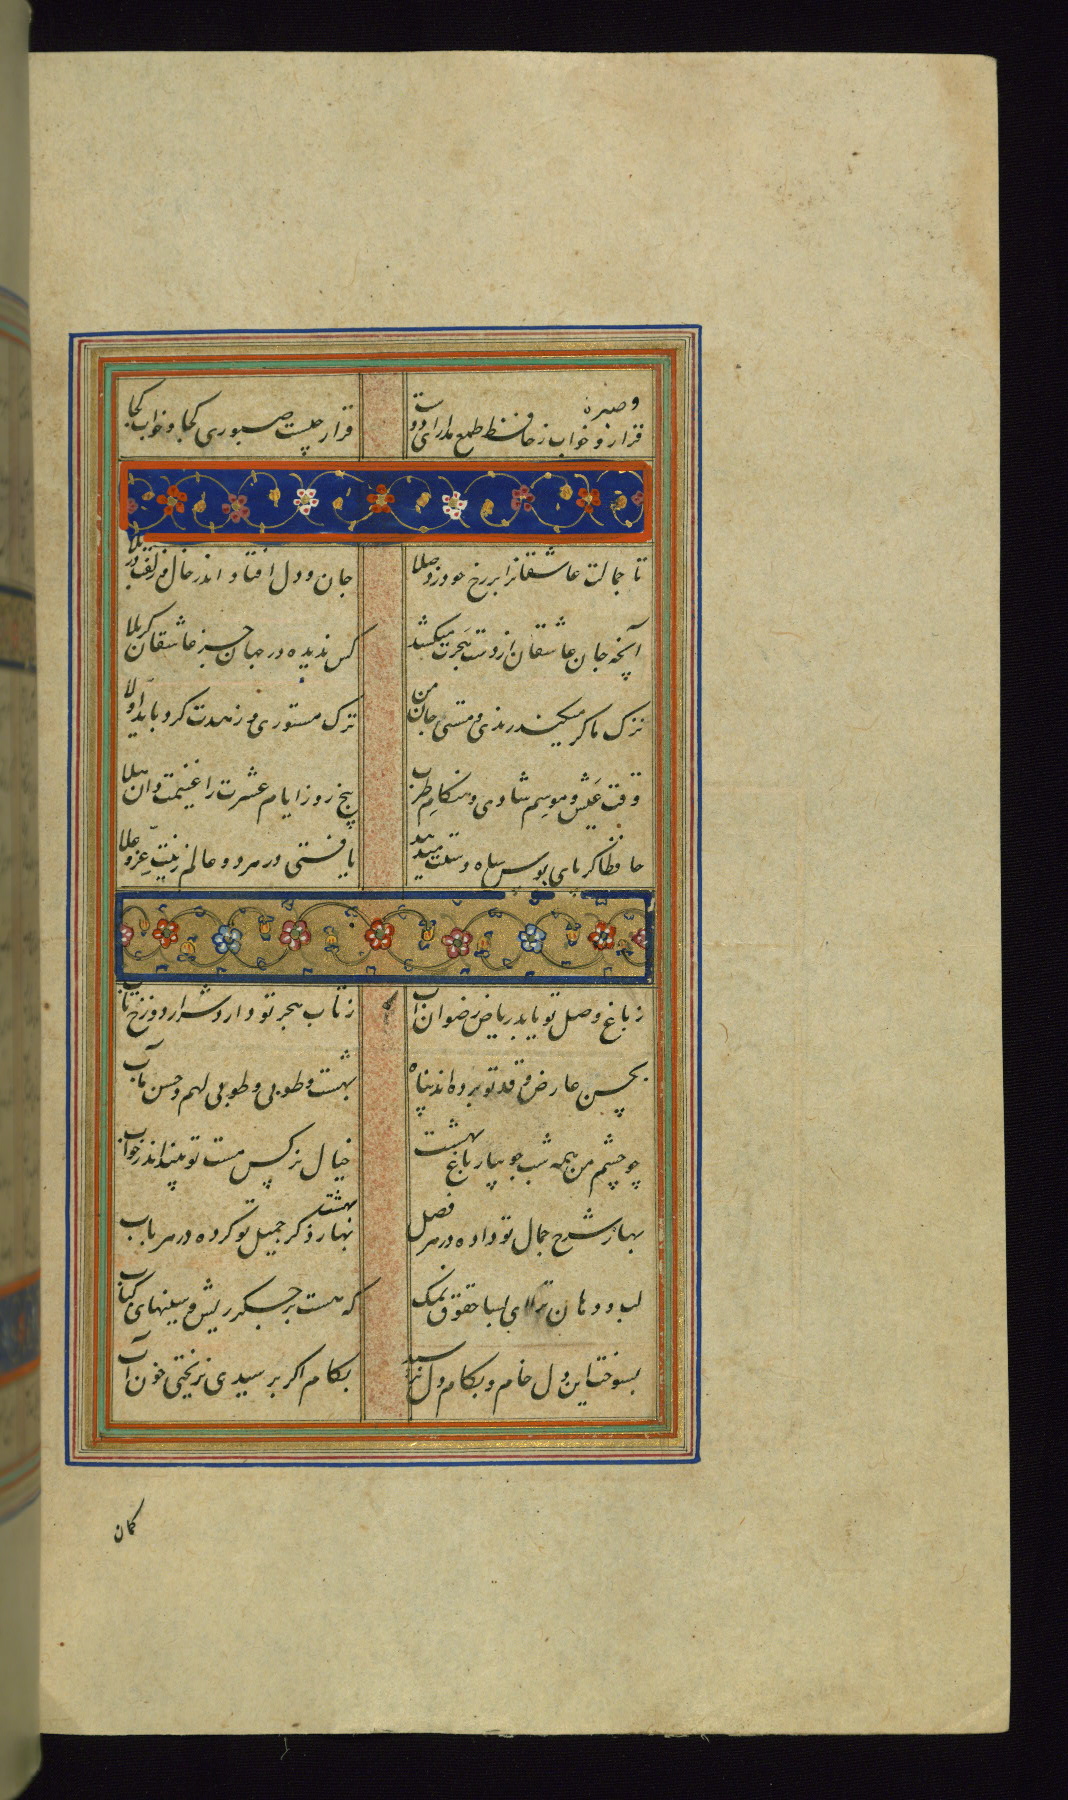 قرار و صبر و خواب ز حافظ طمع مدار ای دوست
قرار چیست صبوری کجا و خواب کجا
تا جمالت عاشقانرا بر رخ خود زد صلا
جان و دل افتاد اندر خال و زلفت در بلا
آنچه جان عاشقان از دست هجرت میکشد
کس ندیده در جهان جز عاشقان کربلا
ترک ما گر میکند رندی و مستی جان من
ترک مستوری و زهدت کرد باید اولا
وقت عیش و موسم شادی و هنگام طرب
پنج روز ایام عشرت را غنیمت دان هلا
حافظا گر پای بوس شاه دستت میدهد
یافتی در هر دو عالم زینت عز و علا
ز باغ وصل تو یابد ریاض رضوان آب
ز تاب هجر تو دارد شرار دوزخ تاب
بحسن عارض و قد تو برده اند پناه
بهشت و طوبی و طوبی لهم و حسن مآب
چو چشم من همه شب جویبار باغ بهشت
خیال نرگس مست تو بیند اندر خواب
بهار شرح جمال تو داده در هر فصل
بهشت ذکر جمیل تو کرده در هر باب
لب و دهان ترا ای بسا حقوق نمک
که هست بر جگر ریش و سینهای کباب
بسوخت این دل خام و بکام دل نرسید
بکام اگر برسیدی نریختی خون آب
کمان